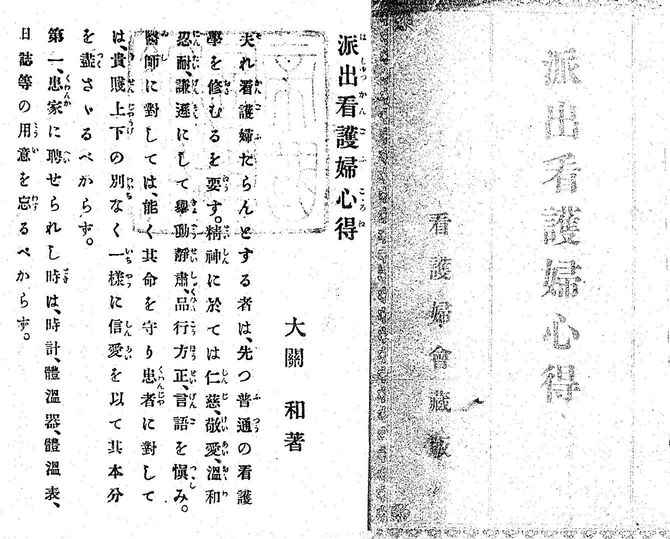 派出看護婦心得
看護婦會藏版
派出看護婦心得
大關 和著
夫れ看護婦たらんとする者は、先つ普通の看護
學を修むるを要す。精神に於ては仁慈、敬愛、溫和
忍耐、謙遜にして擧動靜肅、品行方正、言語を愼み。
醫師に對しては、能く其命を守り患者に對して
は、貴賤上下の別なく一樣に信愛を以て其本分
を盡さゞるべからず。
第一、患家に聘せられし時は、時計、體溫器、體溫表、
日誌等の用意を忘るべからず。